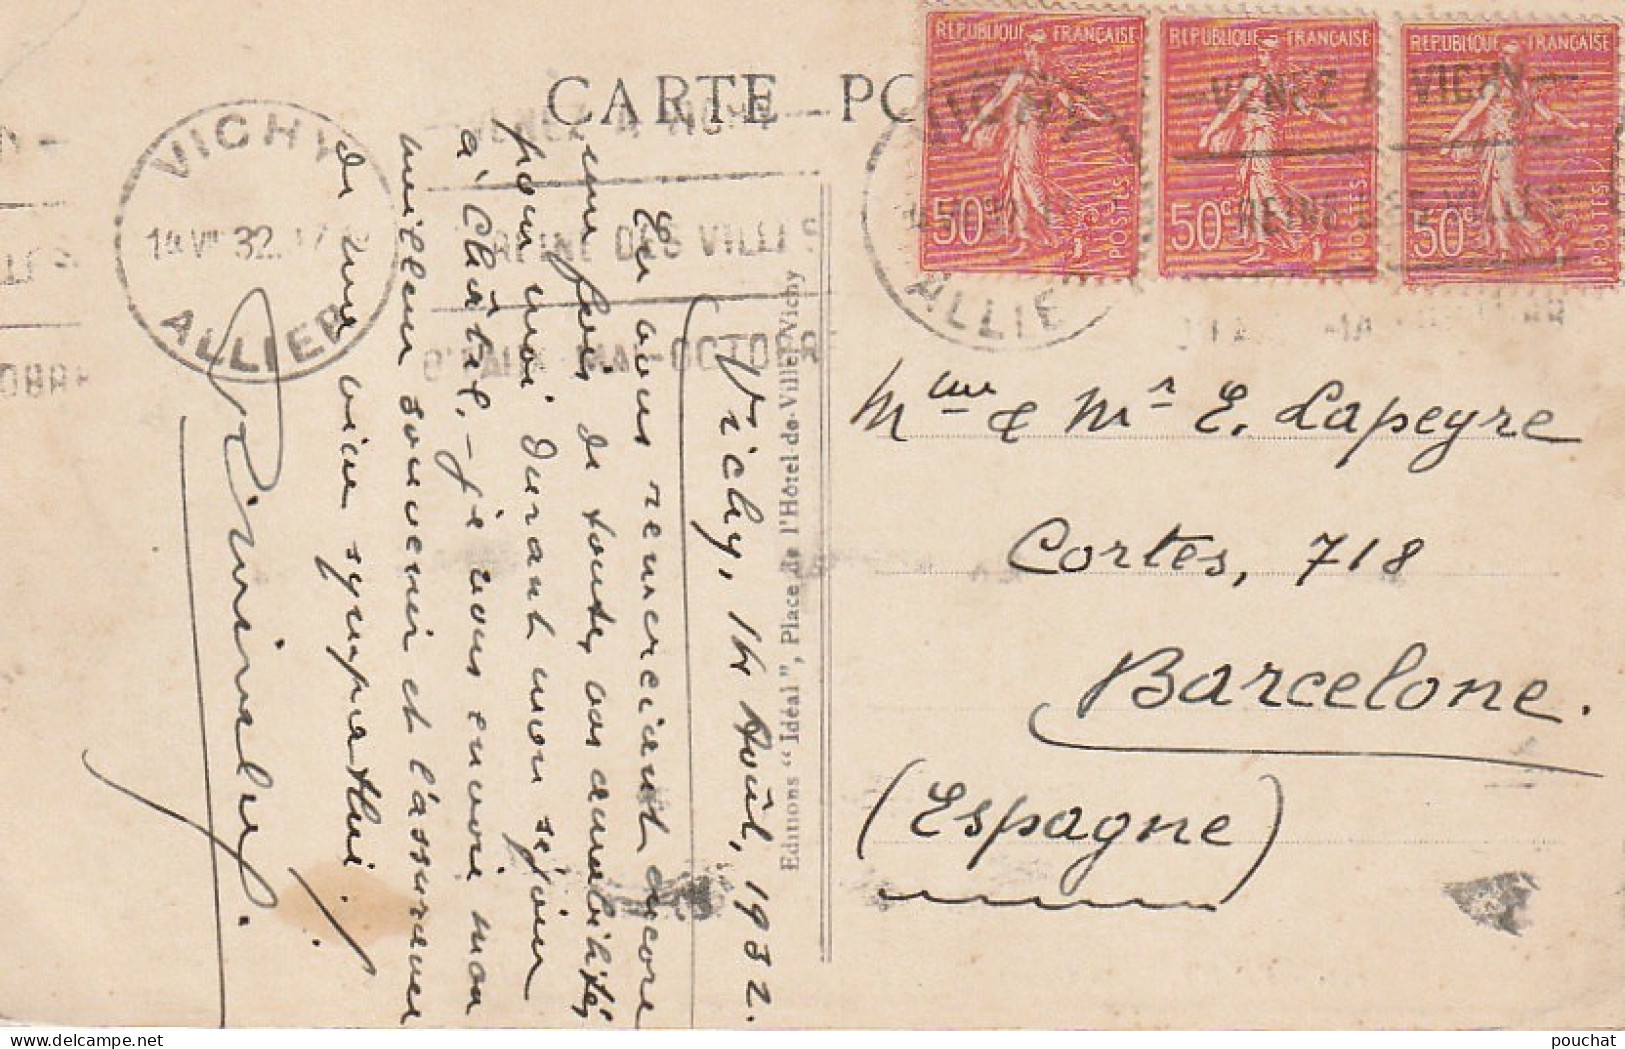 CARTE PO
RÉPUBLIQUE FRANÇAISE
50c
POSTES
RÉPUBLIQUE FRANÇAISE
50c
POSTES
RÉPUBLIQUE FRANÇAISE
50c
POSTES
VICHY
ALLIER
VENEZ A VICHY
REINE DES VILLES
D'EAUX MAI-OCTOBRE
VICHY
14 VIII 32
ALLIER
VENEZ A VICHY
REINE DES VILLES
Vichy, 14 Août, 1932.
En vous remerciant encore
une fois de toutes vos amabilités
pour moi durant mon séjour
à Châtel, - je vous envoie mon
meilleur souvenir et l'assurance
de ma vive sympathie.
Editions "Idéal", Place de l'Hôtel-de-Ville, Vichy
Mme & Mr E. Lapeyre
Cortes, 718
Barcelone.
(Espagne)
pouchat